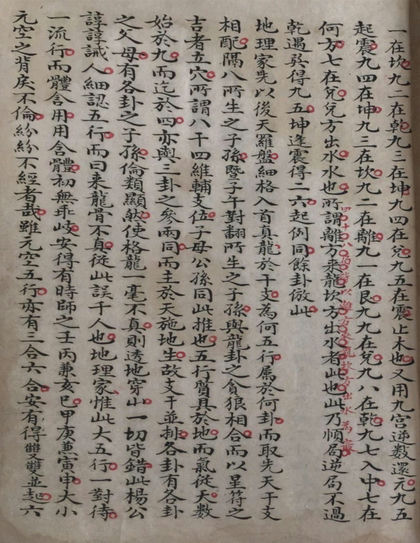 一在坎九二在乾九三在坤九四在兌九五在震止木也又用九宮逆數還元九五
起震九四在坤九三在坎九二在離九一在艮九九在兌九八在乾九七入中七在
何方七在兌兌方出水水也所謂離方來龍坎方出水者此也此乃順局逆局不過
乾遇於得九五坤逢震得二六起例同餘卦倣此
地理家先以後天羅盤細格入首真龍於干支為何五行屬於何卦而取先天干支
相配隔八所生之子孫暨子午對翻所生之子孫與龍卦之貪狼相合而以呈符之
吉者立穴所謂八干四維輔支位子母公孫同此推也五行質具於地而氣從天數
始於九而迄於四亦與三卦之參兩同而主於天施地生故支干並排各卦有各卦
之父母有各卦之子孫倫類顯然使格龍一毫不真則透地穿山一切皆錯此楊公
諄諄誡人細認五行而曰來龍骨不真從此誤千人也地理家惟此大五行一對待
一流行而體含用用含體初無乖歧安得有時師之壬丙兼亥巳甲庚兼寅申大小
元空之背戾不倫紛紛不經者哉雖元空五行亦有三合六合安有得雙雙並起六